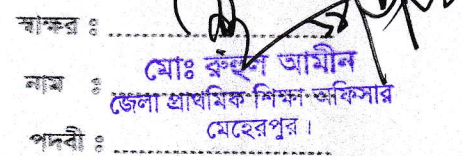 স্বাক্ষর ঃ
মোঃ রুহুল আমীন
নাম ঃ
জেলা প্রাথমিক শিক্ষা অফিসার
মেহেরপুর।
পদবী ঃ